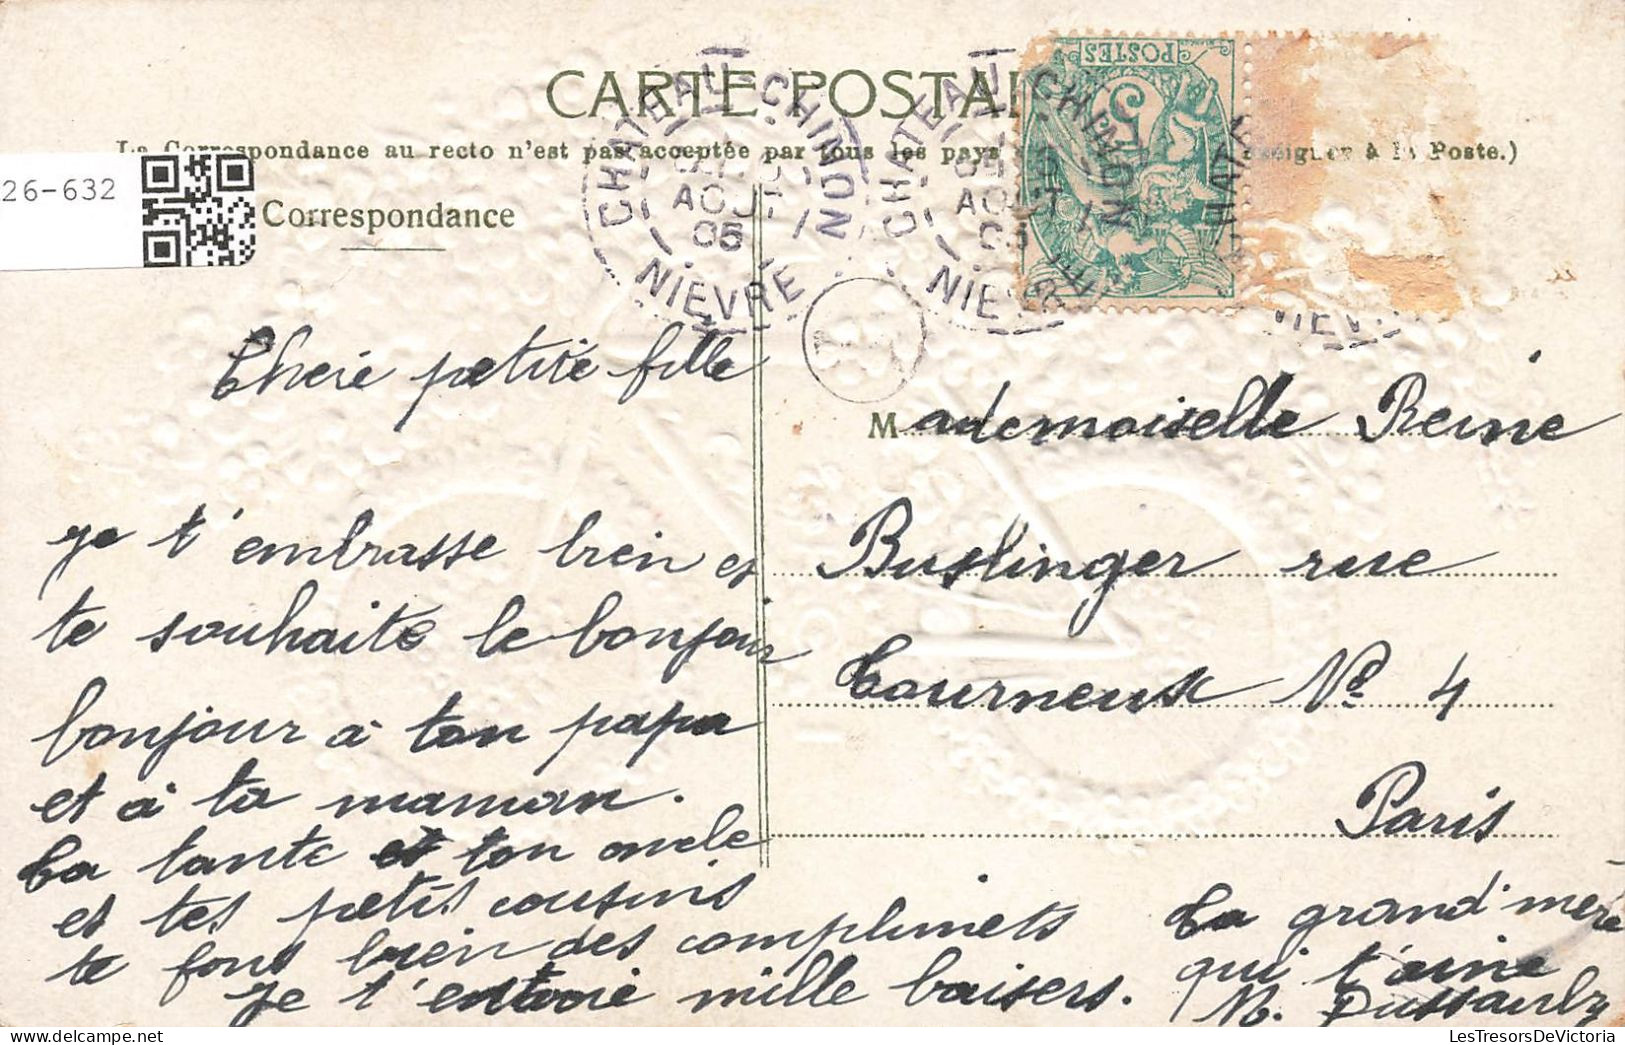 CARTE POSTALE
La Correspondance au recto n'est pas acceptée par tous les pays à la Poste.)
26-632
Correspondance
CHATEAU-CHINON
AOUT
05
NIEVRE
CHATEAU-CHINON
AOUT
05
NIEVRE
POSTES
5
Cherie petite fille
Mademoiselle Reine
Buslinger rue
Tourneux No 4
Paris
Je t'embrasse bien et
te souhaite le bonjour
bonjour à ton papa
et à ta maman.
Ta tante et ton oncle
et tes petits cousins
te font bien des compliments
Je t'envoie mille baisers.
Ta grand'mere
qui t'aime
M. Dussaulx
LesTresorsDeVictoria